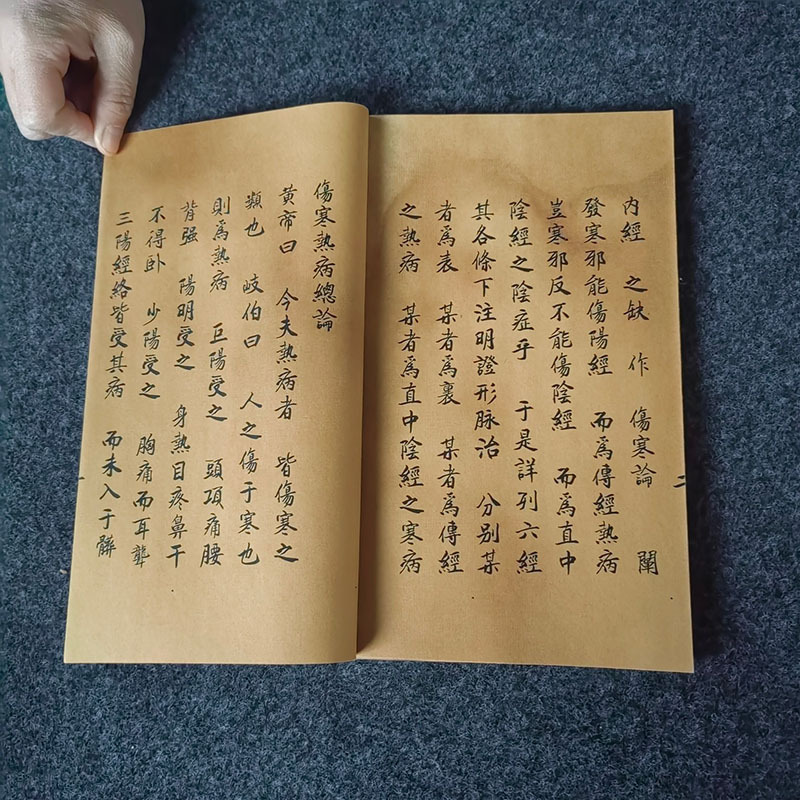 内經 之缺 作 傷寒論 闡
發寒邪能傷陽經 而爲傳經熱病
豈寒邪反不能傷陰經 而爲直中
陰經之陰症乎 于是詳列六經
其各條下注明證形脉治 分别某
者爲表 某者爲裏 某者爲傳經
之熱病 某者爲直中陰經之寒病
傷寒熱病總論
黄帝曰 今夫熱病者 皆傷寒之
類也 岐伯曰 人之傷于寒也
則爲熱病 巨陽受之 頭項痛腰
背强 陽明受之 身熱目疼鼻干
不得卧 少陽受之 胸痛而耳聾
三陽經絡皆受其病 而未入于髒